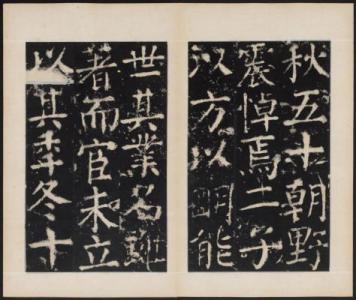 秋五十朝野
震悼焉二子
以方以明能
世其業名雖
者而官未立
以其季冬十